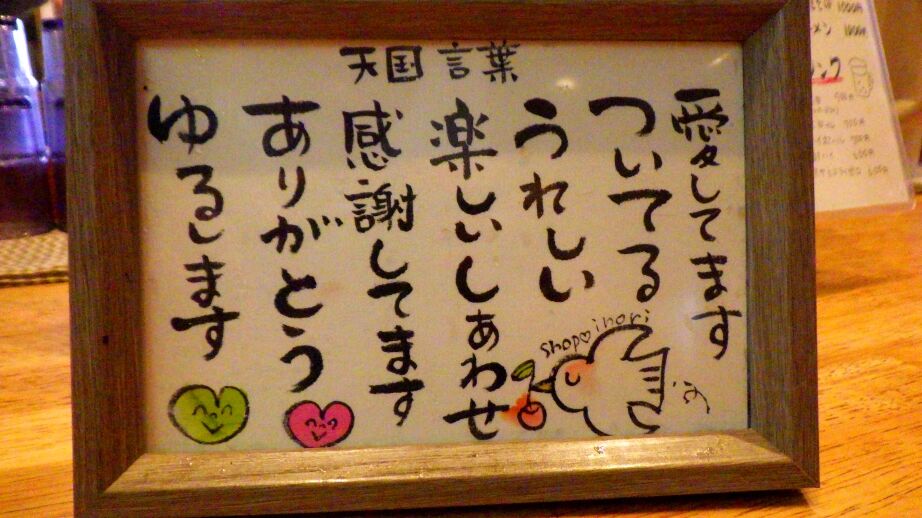 天国言葉
愛してます
ついてる
うれしい
楽しいしあわせ
感謝してます
ありがとう
ゆるします
shop♡inori